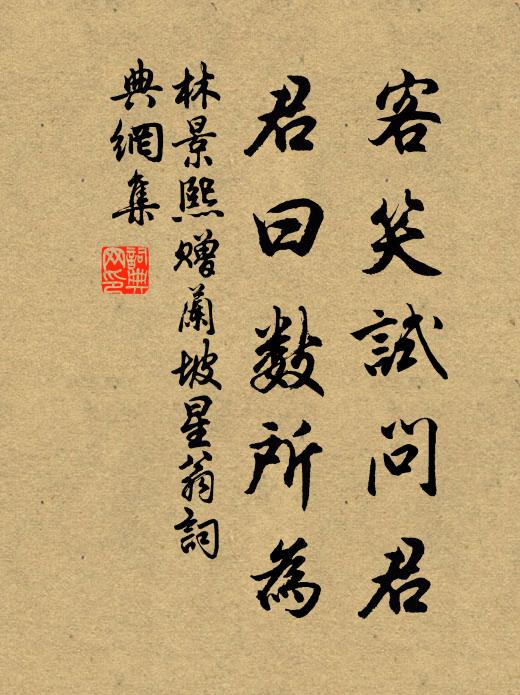 客笑試問君
君曰數所為
林景熙贈蘭坡星翁詞
典網集
詞典網印